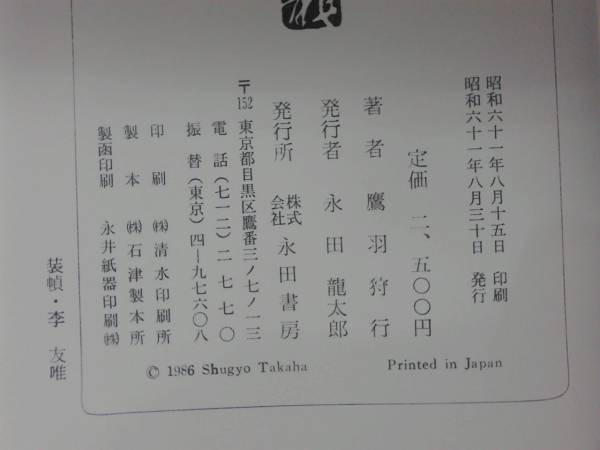 昭和六十一年八月十五日 印刷
昭和六十一年八月三十日 発行
定価 二、五〇〇円
著者 鷹羽狩行
発行者 永田龍太郎
発行所 株式会社 永田書房
〒152 東京都目黒区鷹番三ノ七ノ一三
電話(七一二)二七七〇
振替(東京)四―九七六〇八
印刷 ㈱清水印刷所
製本 ㈱石津製本所
製函印刷 永井紙器印刷㈱
装幀・李 友唯
© 1986 Shugyo Takaha Printed in Japan